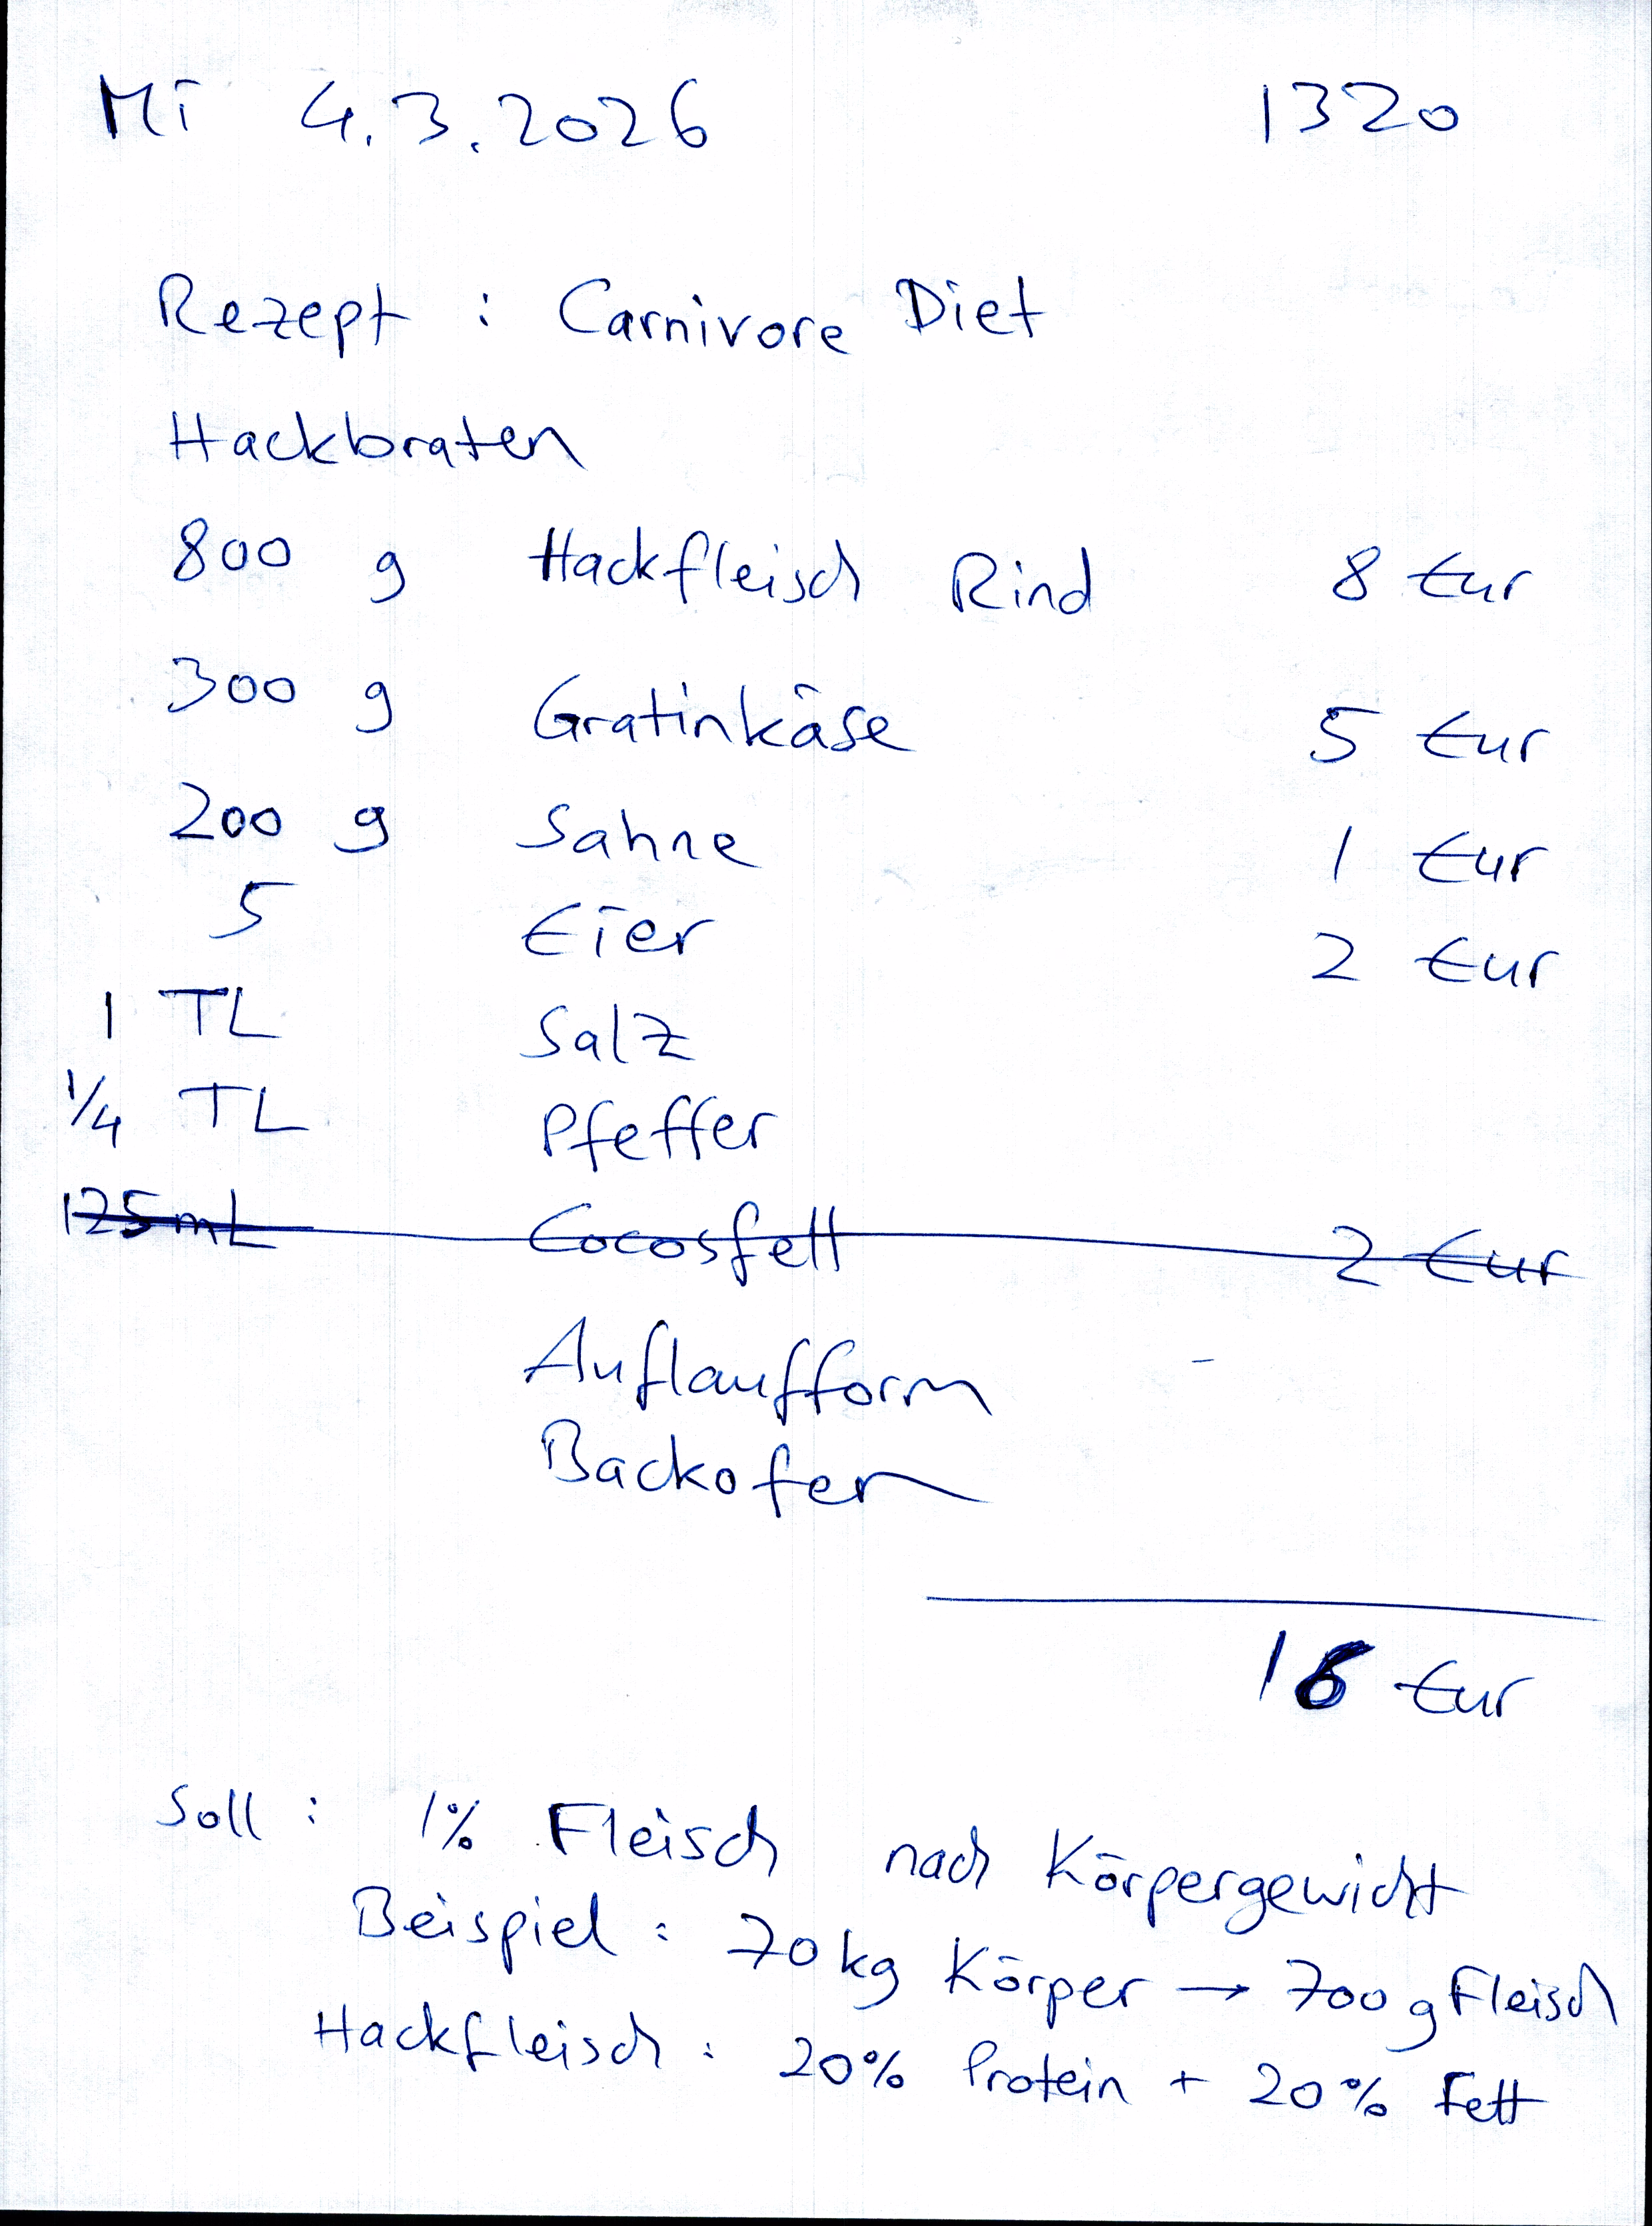 Mi 4.3.2026 1320
Rezept : Carnivore Diet
Hackbraten
800 g Hackfleisch Rind 8 Eur
300 g Gratinkäse 5 Eur
200 g Sahne 1 Eur
5 Eier 2 Eur
1 TL Salz
1/4 TL Pfeffer
125 mL Cocosfett 2 Eur
Auflaufform -
Backofen
16 Eur
Soll : 1% Fleisch nach Körpergewicht
Beispiel : 70 kg Körper → 700 g Fleisch
Hackfleisch : 20% Protein + 20% Fett